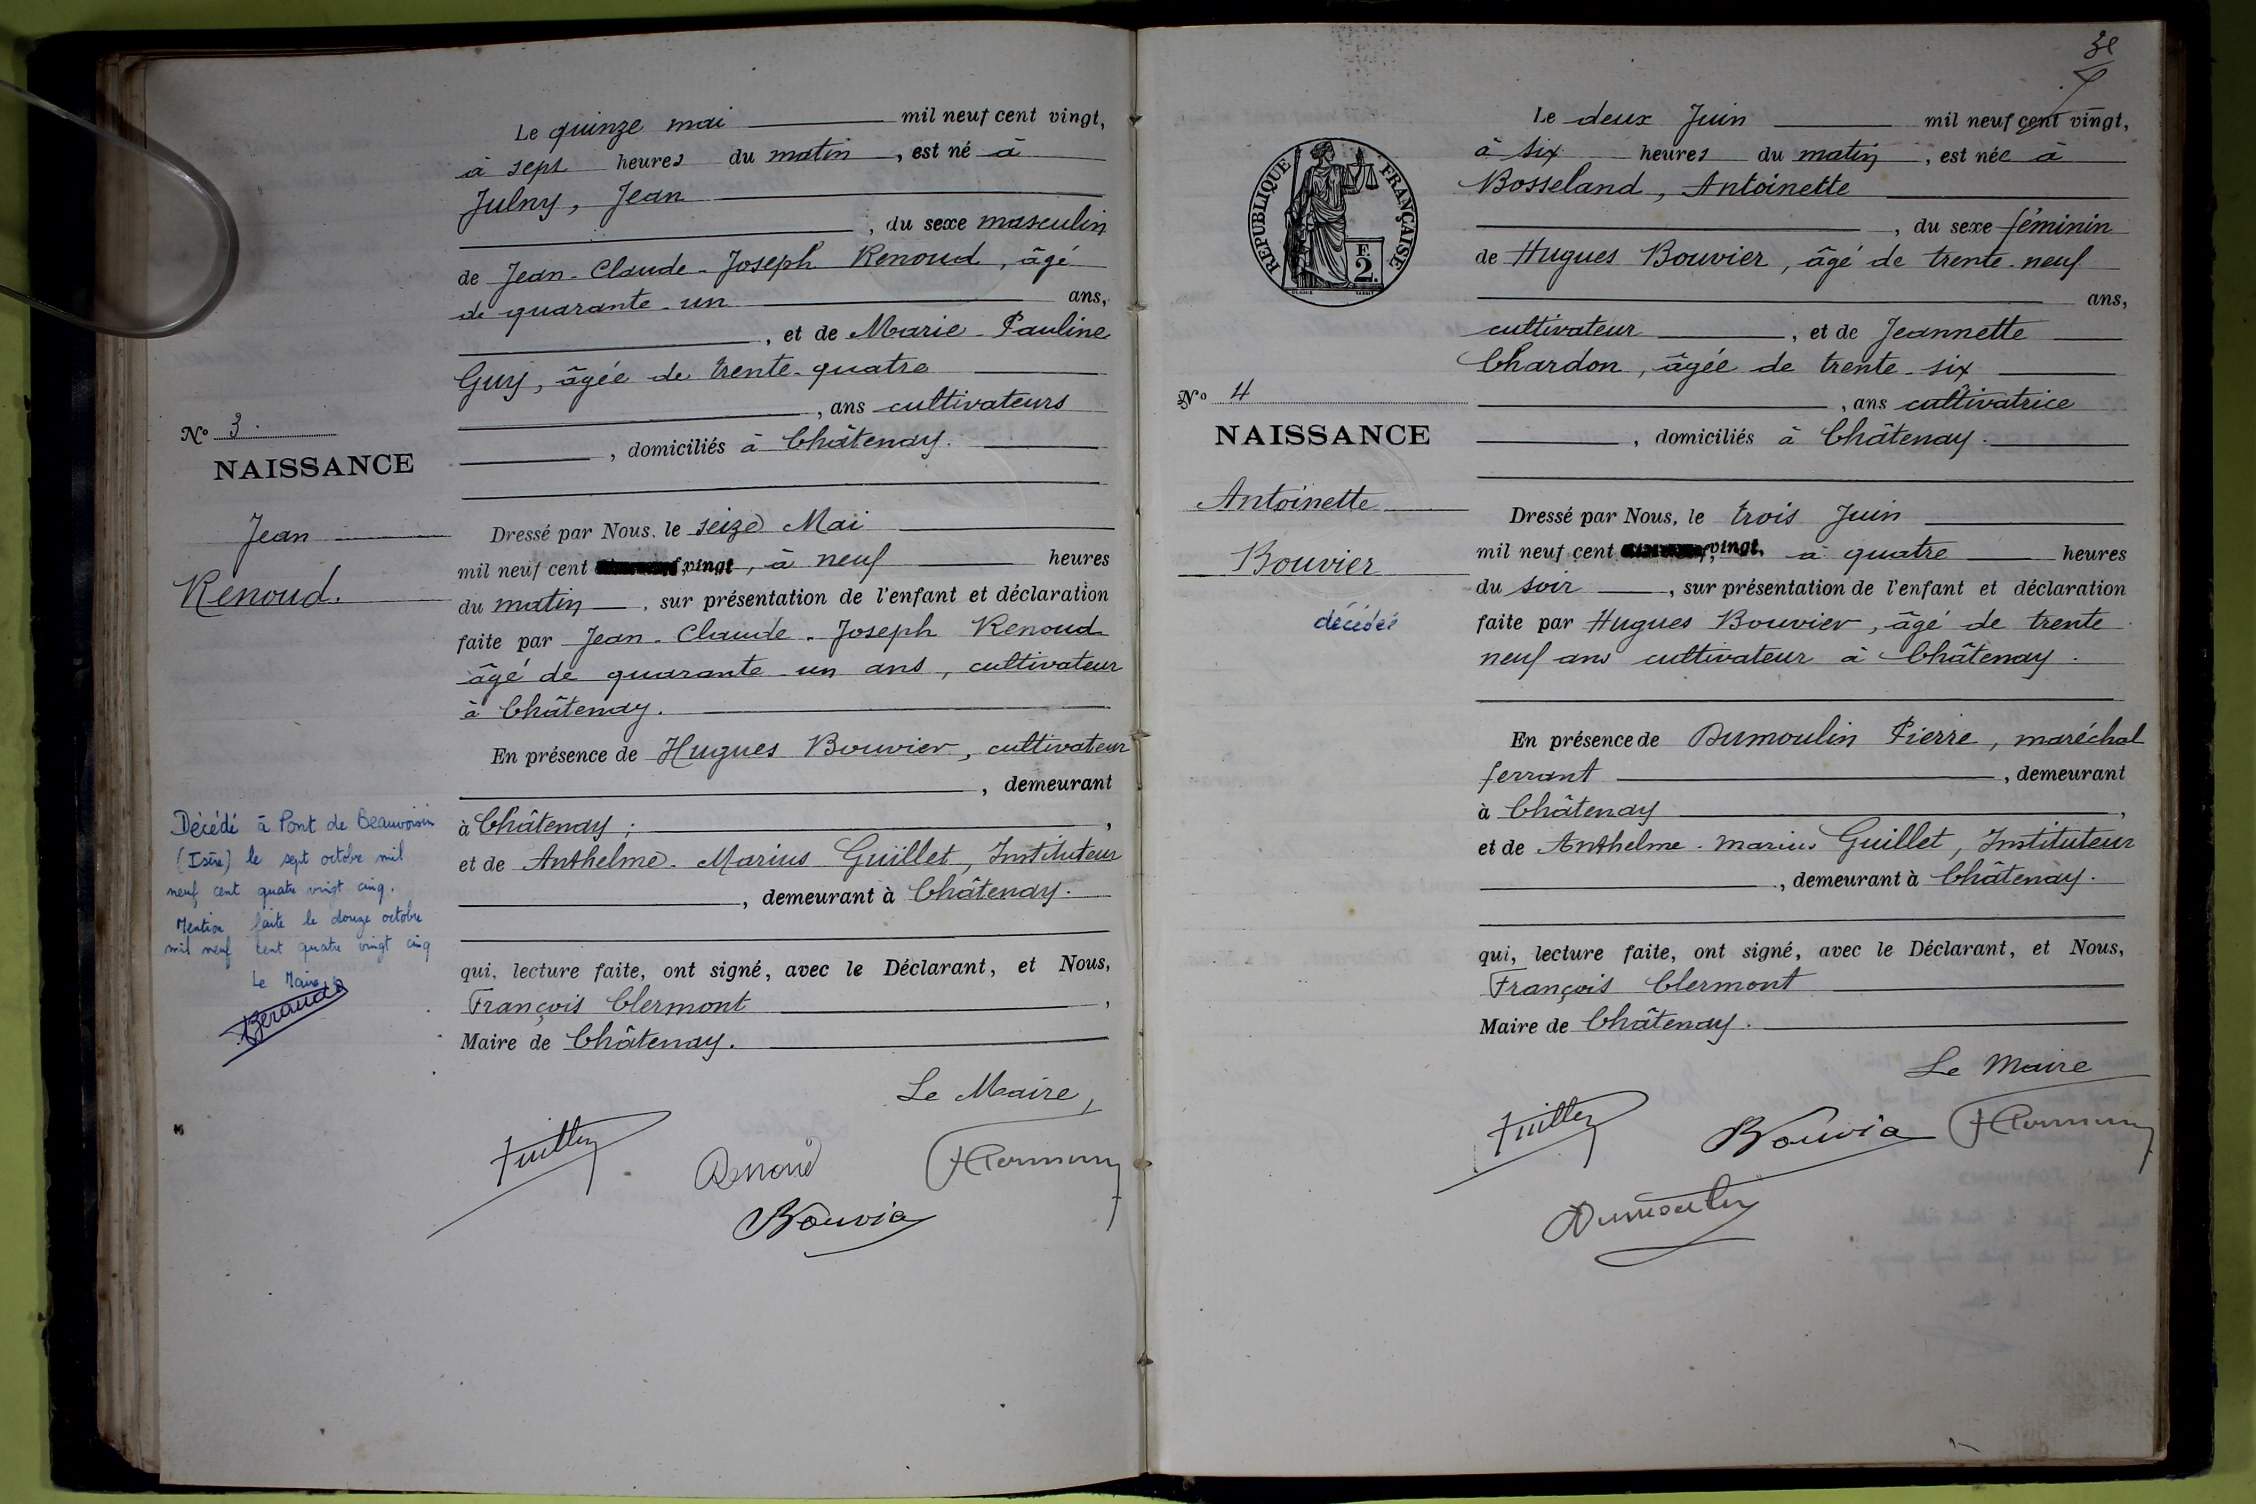 Le quinze mai mil neuf cent vingt,
à sept heures du matin, est né à
Julny, Jean
, du sexe masculin
de Jean-Claude-Joseph Renoud, âgé
de quarante-un ans,
, et de Marie-Pauline
Guy, âgée de trente-quatre
, ans cultivateurs
, domiciliés à Châtenay.
No 3.
NAISSANCE
Jean
Renoud.
Dressé par Nous, le seize Mai
mil neuf cent vingt, à neuf heures
du matin, sur présentation de l'enfant et déclaration
faite par Jean-Claude-Joseph Renoud
âgé de quarante-un ans, cultivateur
à Châtenay.
En présence de Hugues Bouvier, cultivateur
, demeurant
à Châtenay ; ,
et de Anthelme-Marius Guillet, Instituteur
, demeurant à Châtenay.
qui, lecture faite, ont signé, avec le Déclarant, et Nous,
François Clermont ,
Maire de Châtenay.
Le Maire,
Renoud
Bouvier
Décédé à Pont de Beauvoisin
(Isère) le sept octobre mil
neuf cent quatre vingt cinq.
Mention faite le douze octobre
mil neuf cent quatre vingt cinq
Le Maire
RÉPUBLIQUE FRANÇAISE
F.
2.
Le deux Juin mil neuf cent vingt,
à six heures du matin, est née à
Bosseland, Antoinette
, du sexe féminin
de Hugues Bouvier, âgé de trente-neuf
ans,
cultivateur , et de Jeannette
Chardon, âgée de trente-six
, ans cultivatrice
, domiciliés à Châtenay.
No 4
NAISSANCE
Antoinette
Bouvier
décédée
Dressé par Nous, le trois Juin
mil neuf cent vingt, à quatre heures
du soir , sur présentation de l'enfant et déclaration
faite par Hugues Bouvier, âgé de trente
neuf ans cultivateur à Châtenay.
En présence de Dumoulin Pierre, maréchal
ferrant , demeurant
à Châtenay ,
et de Anthelme-Marius Guillet, Instituteur
, demeurant à Châtenay.
qui, lecture faite, ont signé, avec le Déclarant, et Nous,
François Clermont
Maire de Châtenay.
Le Maire
Bouvier
Dumoulin